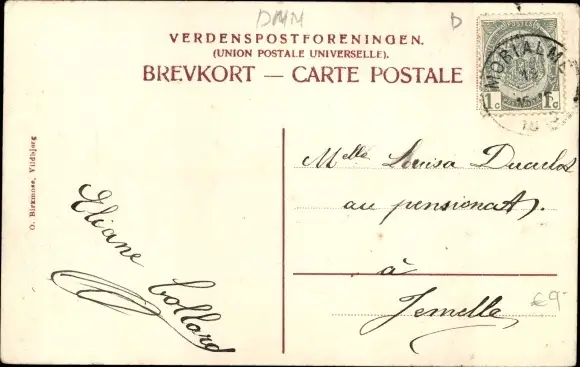 DMM
D
VERDENSPOSTFORENINGEN.
(UNION POSTALE UNIVERSELLE).
BREVKORT — CARTE POSTALE
MORIALMÉ
1c 1c
O. Birkmose, Vildbjerg
Eliane Collard
Melle Louisa Duculot
au pensionat.
à
Jemelle
€9-